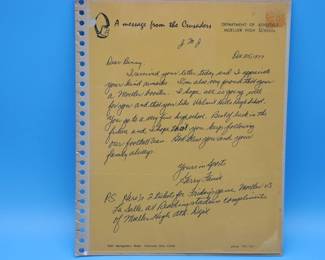 A message from the Crusaders
DEPARTMENT OF ATHLETICS
MOELLER HIGH SCHOOL
J M J
Dear Benny,
I received your letter today and I appreciate
your kind remarks. I'm also very proud that your
a Moeller booster. I hope all is going well
for you and that you like Walnut Hills High School.
You go to a very fine high school. Best of luck in the
future and I hope that you keep following
our football team. God bless you and your
family always.
Yours in Sports
Gerry Faust
PS. Here's 2 tickets for Friday's game Moeller vs
La Salle at Reading stadium compliments
of Moeller High Ath Dept